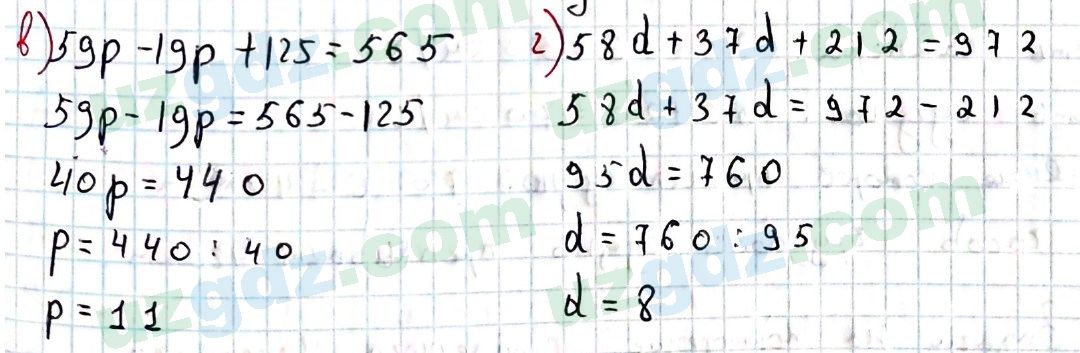 в) 59p - 19p + 125 = 565
59p - 19p = 565 - 125
40p = 440
p = 440 : 40
p = 11
г) 58d + 37d + 212 = 972
58d + 37d = 972 - 212
95d = 760
d = 760 : 95
d = 8
uzgdz.com
uzgdz.com
uzgdz.com